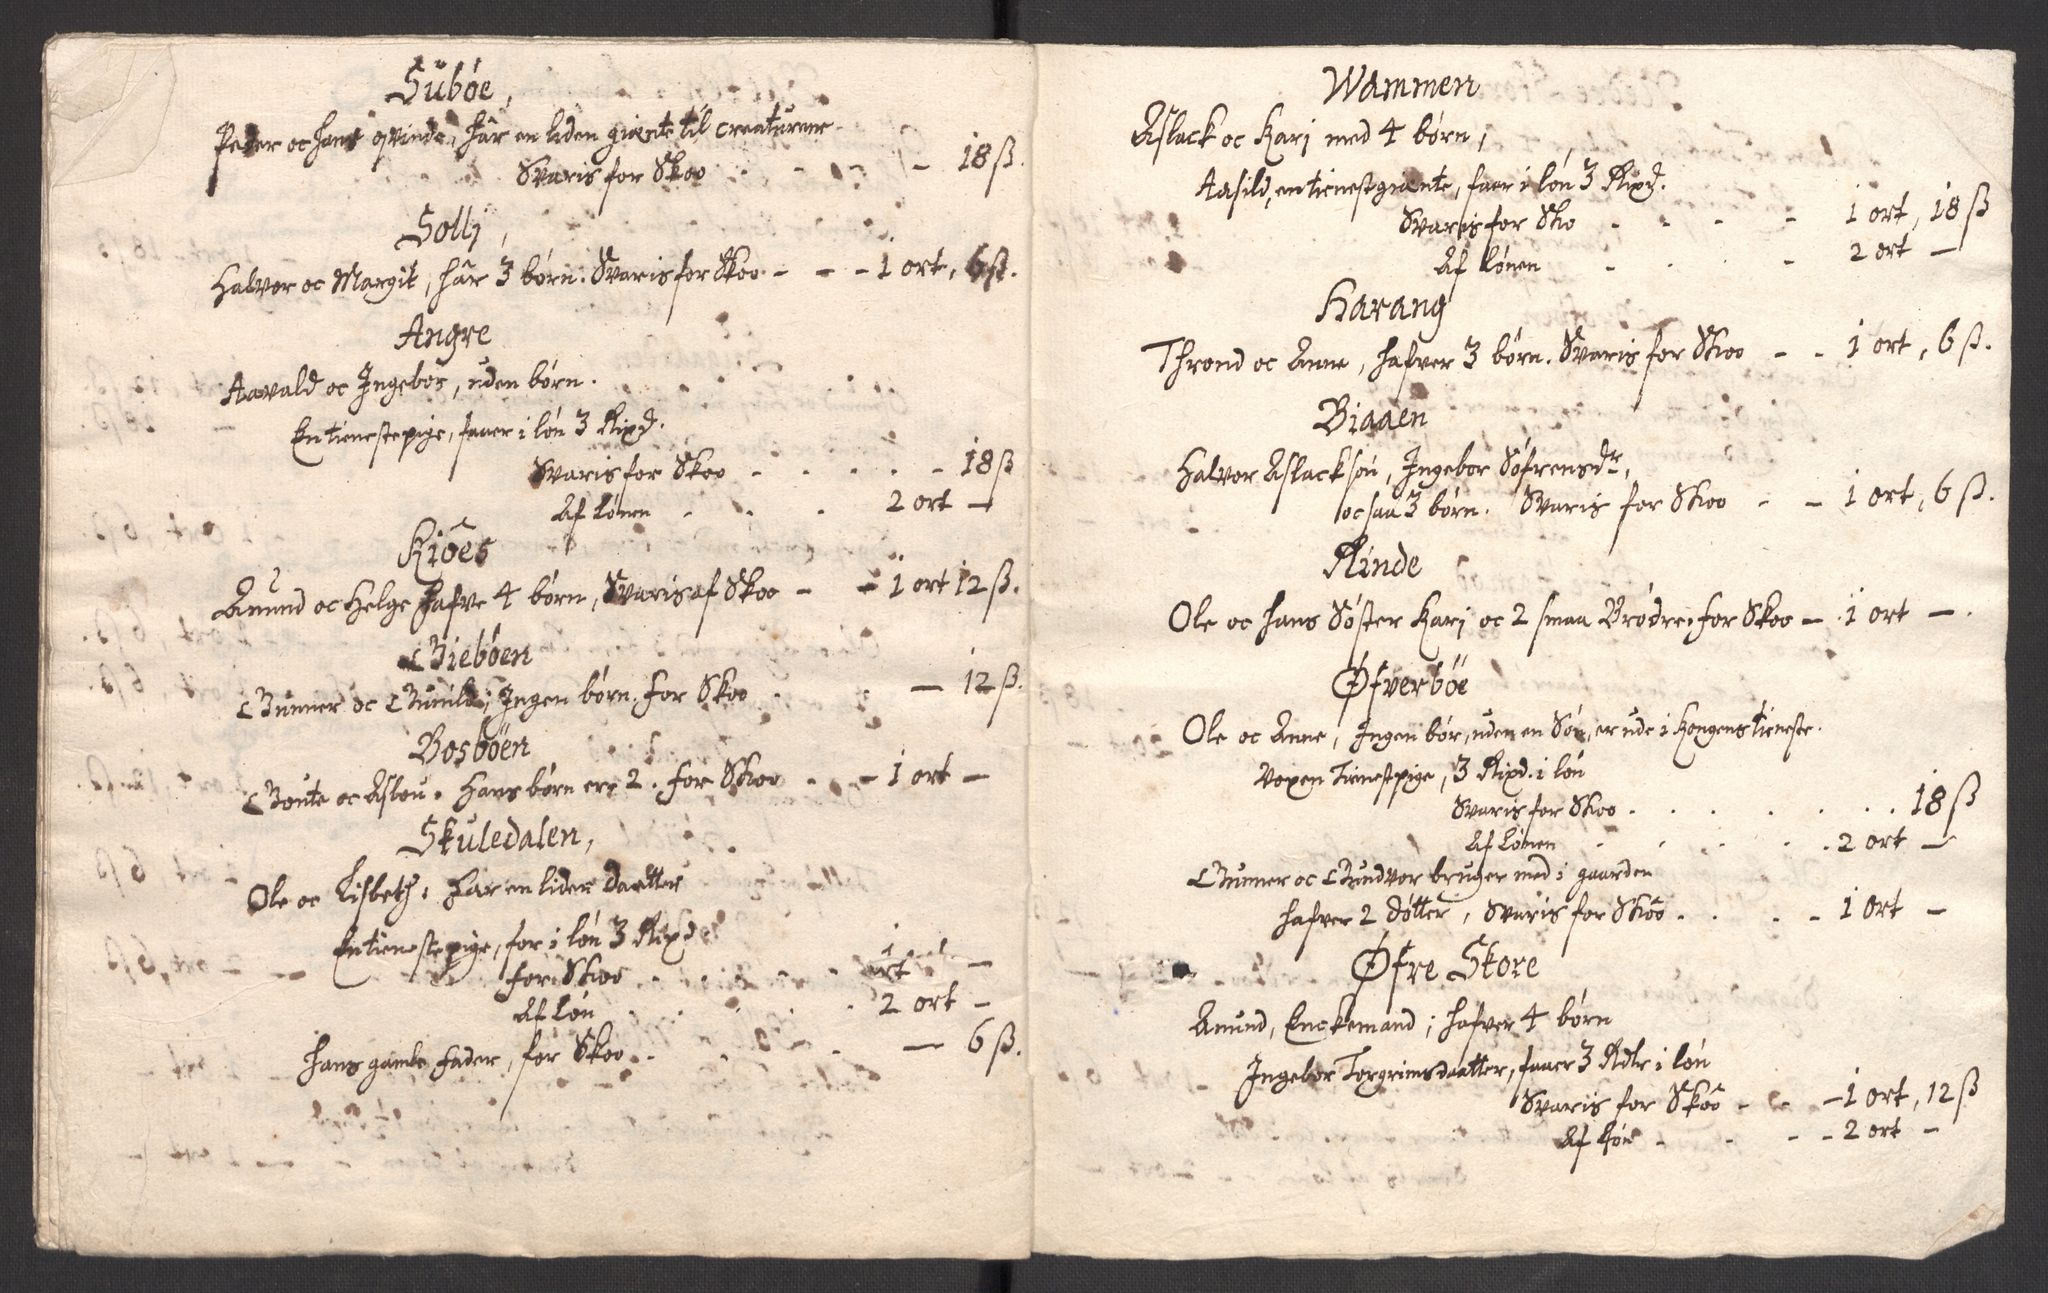 Sübøe,
Peder oc hans qvinde, hâr en liden giente til Creaturene
Svaris for Skoo - - - 18 ß.
Sollj,
Halvor oc Margit, hâr 3 børn. Svaris for Skoo - - - 1 ort, 6 ß.
Angre
Aavald oc Ingebor, uden børn.
En tienestepige, faaer i løn 3 Rixd.
Svaris for Skoo - . . . - 18 ß
Af lønen . . . 2 ort —
Kiôes
Amund oc Helge hafve 4 børn, Svaris af Skoo - - 1 ort 12 ß.
Giebøen
Gunner oc Gunild; Ingen børn. for Skoo . . — 12 ß.
Bosbøen
Gonte oc Aslou. Hans børn ere 2. for Skoo . . - 1 ort —
Skuledalen,
Ole oc Lisbeth. har en liden daatter
En tienestepige, for i løn 3 Rixd
for Skoo . . . . 1 ort —
Af løn . . . . 2 ort —
Hans gamle Fader, for Skoo . . . — 6 ß.
Wammen
Aslack oc Karj med 4 børn,
Aasild, en tienestgiente, faar i løn 3 Rixd.
Svaris for Sko . - - - 1 ort, 18 ß
Af lønen - . . - 2 ort —
Harang
Thrond oc Anne, hafver 3 børn. Svaris for Skoo - - 1 ort, 6 ß.
Biaaen
Halvor Aslacksøn, Ingebor Søfrensdr,
ocsaa 3 børn. Svaris for Skoo - - 1 ort, 6 ß.
Rinde
Ole oc hans Søster Karj oc 2 smaa Brødre. for Skoo - . 1 ort —.
Øfverbøe
Ole oc Anne, Ingen bør, uden en Søn, er ude i Kongens tieneste.
Voxen Tienestpige, 3 Rixd. i løn
Svaris for Skoo . . . . . . 18 ß
Af Lønen . . . . . 2 ort —
Gunner oc Gundvor bruger med i gaarden
hafver 2 døtter, Svaris for Skoo . . . - 1 ort —
Øfre Skore
Amund, Enckemand; hafver 4 børn
Ingebor Torgrimsdaatter, faaer 3 Rdlr i løn
Svaris for Skoo - - - 1 ort, 12 ß
Af Løn - - - - 2 ort —